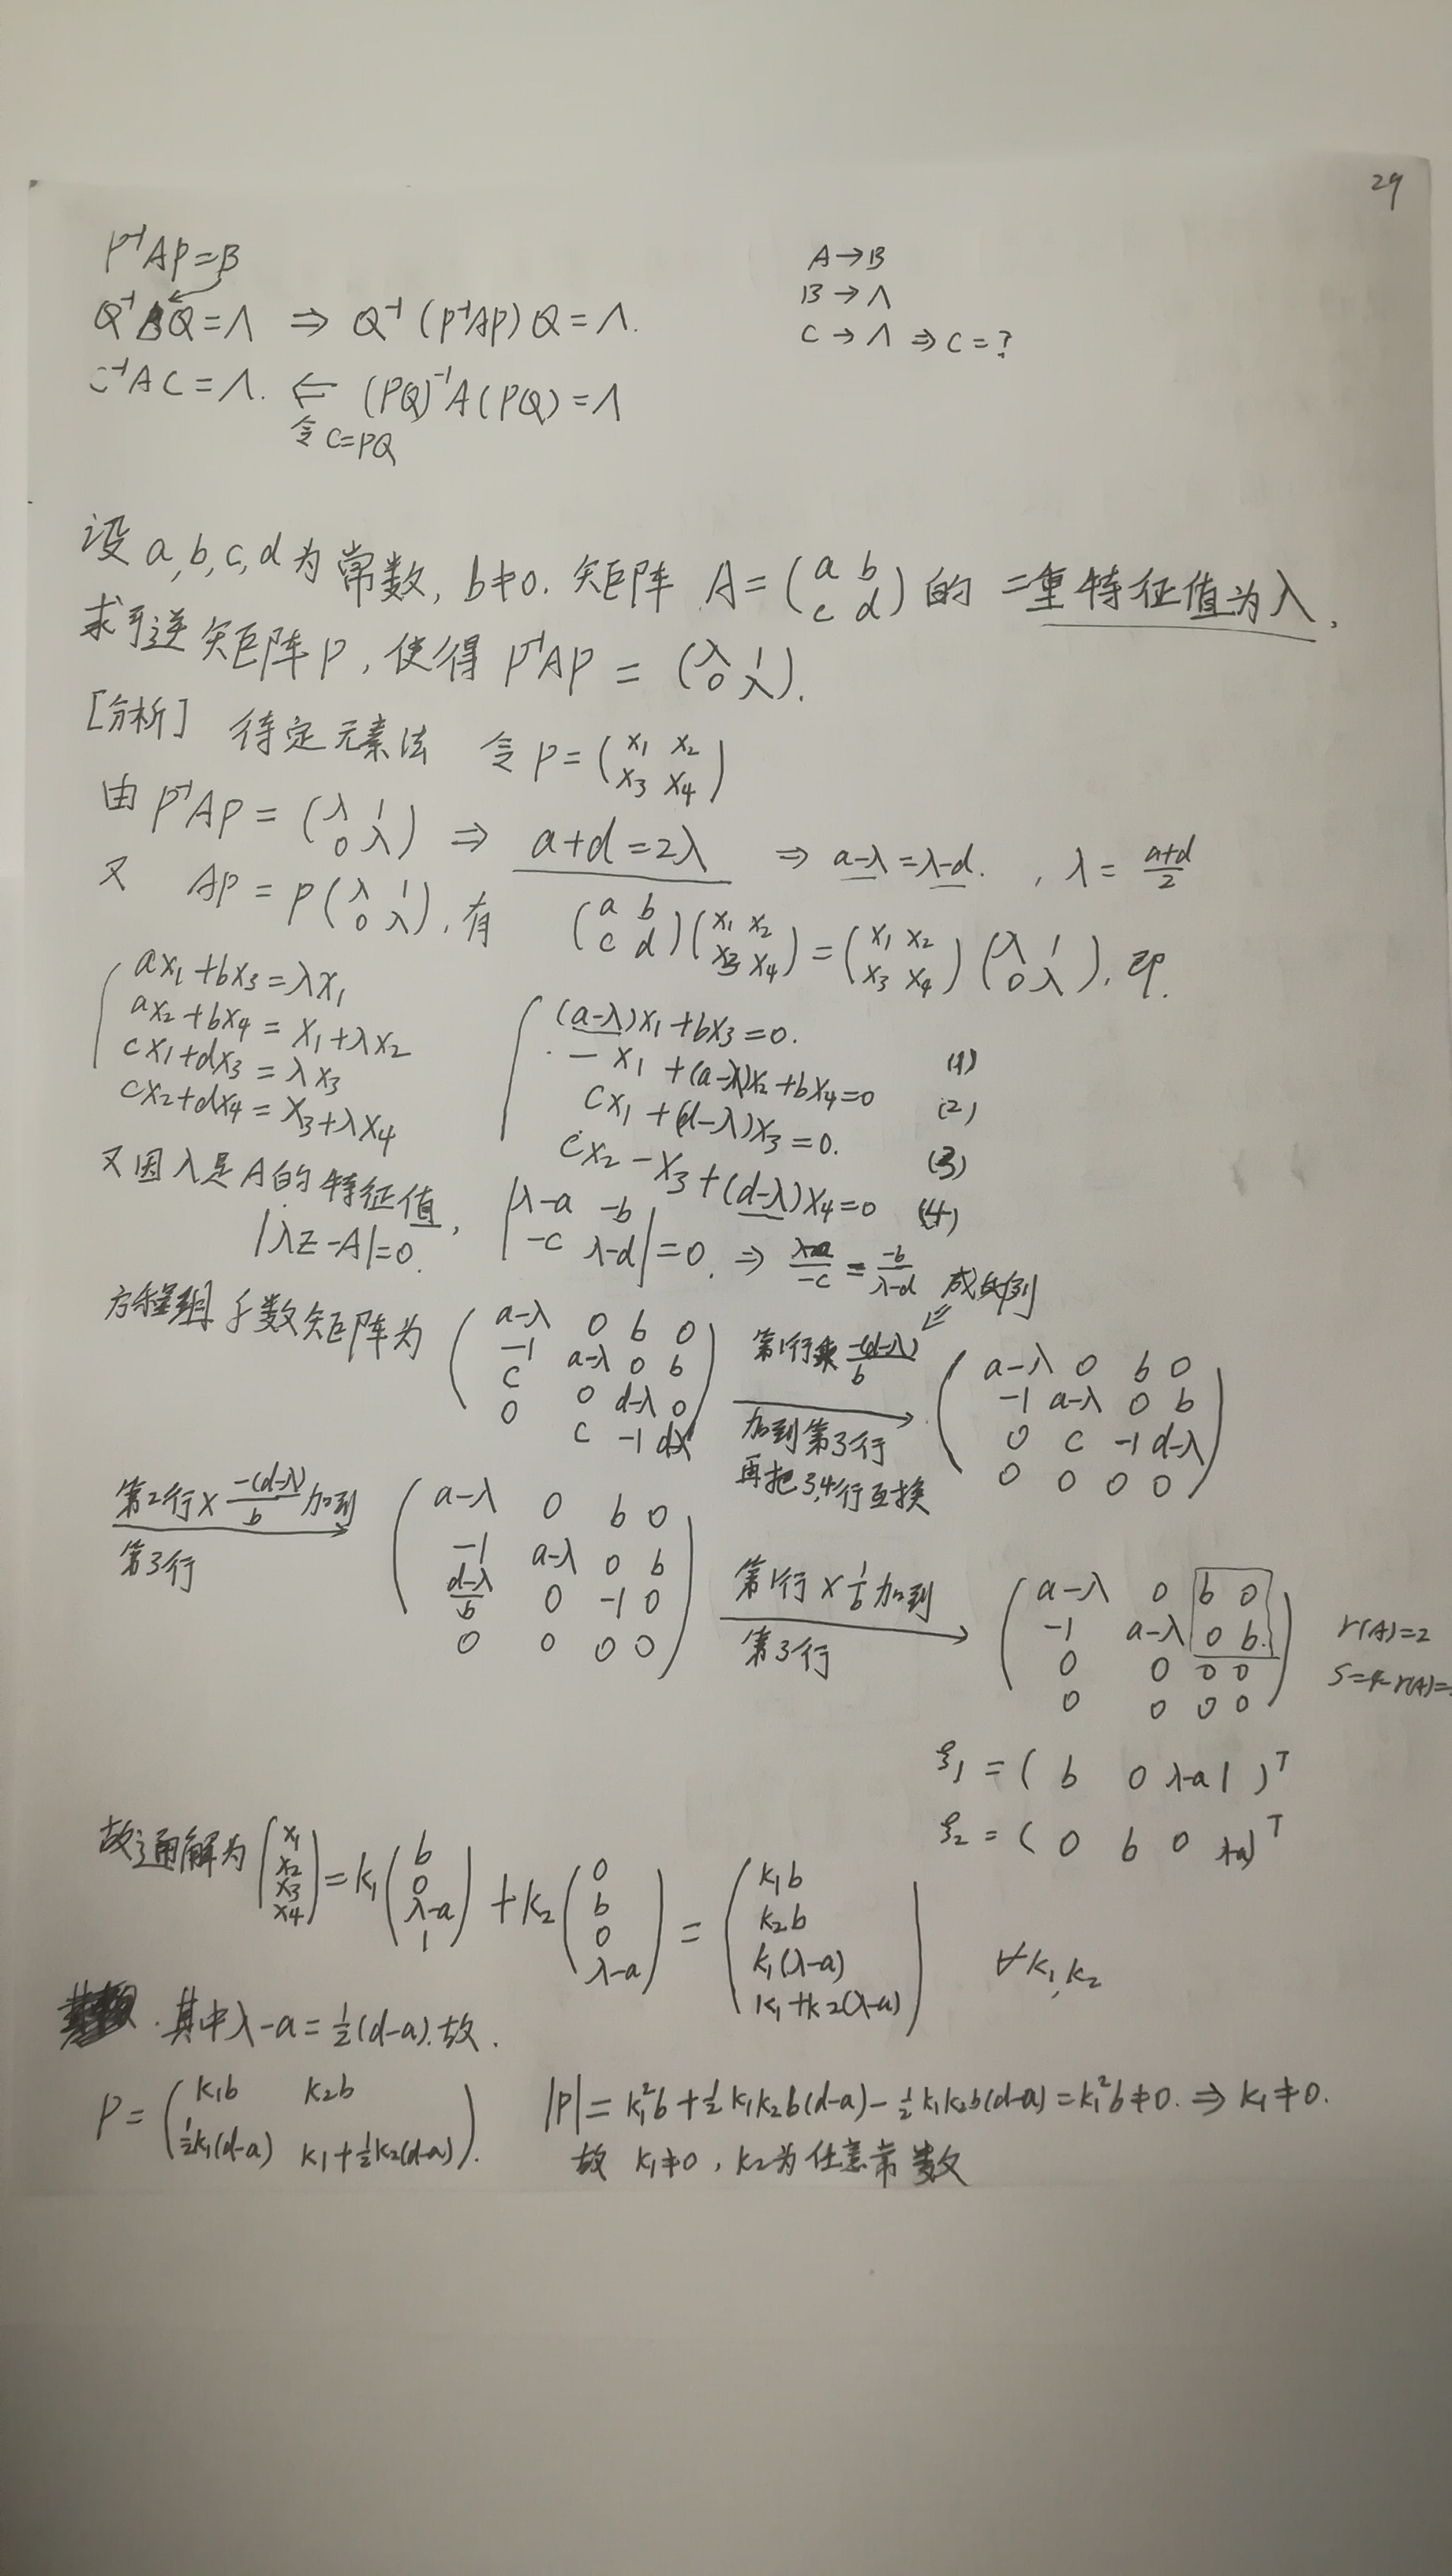 29
P⁻¹AP=B
A→B
Q⁻¹BQ=Λ ⇒ Q⁻¹(P⁻¹AP)Q=Λ.
B→Λ
C→Λ ⇒ C=?
C⁻¹AC=Λ. ⇐ (PQ)⁻¹A(PQ)=Λ
令C=PQ
设a,b,c,d为常数, b≠0. 矩阵 A=(a b; c d)的二重特征值为λ,
求可逆矩阵P, 使得P⁻¹AP=(λ 1; 0 λ).
[分析] 待定元素法 令P=(x₁ x₂; x₃ x₄)
由P⁻¹AP=(λ 1; 0 λ) ⇒ a+d=2λ ⇒ a-λ=λ-d. , λ=(a+d)/2
又 AP=P(λ 1; 0 λ), 有 (a b; c d)(x₁ x₂; x₃ x₄)=(x₁ x₂; x₃ x₄)(λ 1; 0 λ), 即.
ax₁+bx₃=λx₁
ax₂+bx₄=x₁+λx₂
cx₁+dx₃=λx₃
cx₂+dx₄=x₃+λx₄
(a-λ)x₁+bx₃=0. (1)
-x₁+(a-λ)x₂+bx₄=0 (2)
cx₁+(d-λ)x₃=0. (3)
cx₂-x₃+(d-λ)x₄=0 (4)
又因λ是A的特征值,
|λE-A|=0. |λ-a -b; -c λ-d|=0. ⇒ (λ-a)/(-c)=(-b)/(λ-d) 成比例
方程组系数矩阵为 (a-λ 0 b 0; -1 a-λ 0 b; c 0 d-λ 0; 0 c -1 d-λ) 第1行乘 -(d-λ)/b 加到第3行 再把3,4行互换 (a-λ 0 b 0; -1 a-λ 0 b; 0 c -1 d-λ; 0 0 0 0)
第2行× -(d-λ)/b 加到 第3行 (a-λ 0 b 0; -1 a-λ 0 b; (d-λ)/b 0 -1 0; 0 0 0 0) 第1行×1/b加到 第3行 (a-λ 0 b 0; -1 a-λ 0 b; 0 0 0 0; 0 0 0 0)
r(A)=2
S=4-r(A)=
ξ₁=( b 0 λ-a 1 )ᵀ
ξ₂=( 0 b 0 λ-a)ᵀ
故通解为(x₁; x₂; x₃; x₄)=k₁(b; 0; λ-a; 1)+k₂(0; b; 0; λ-a)=(k₁b; k₂b; k₁(λ-a); k₁+k₂(λ-a)) ∀k₁,k₂
其中λ-a=½(d-a).故.
P=(k₁b k₂b; ½k₁(d-a) k₁+½k₂(d-a)). |P|=k₁²b+½k₁k₂b(d-a)-½k₁k₂b(d-a)=k₁²b≠0. ⇒ k₁≠0.
故 k₁≠0, k₂为任意常数